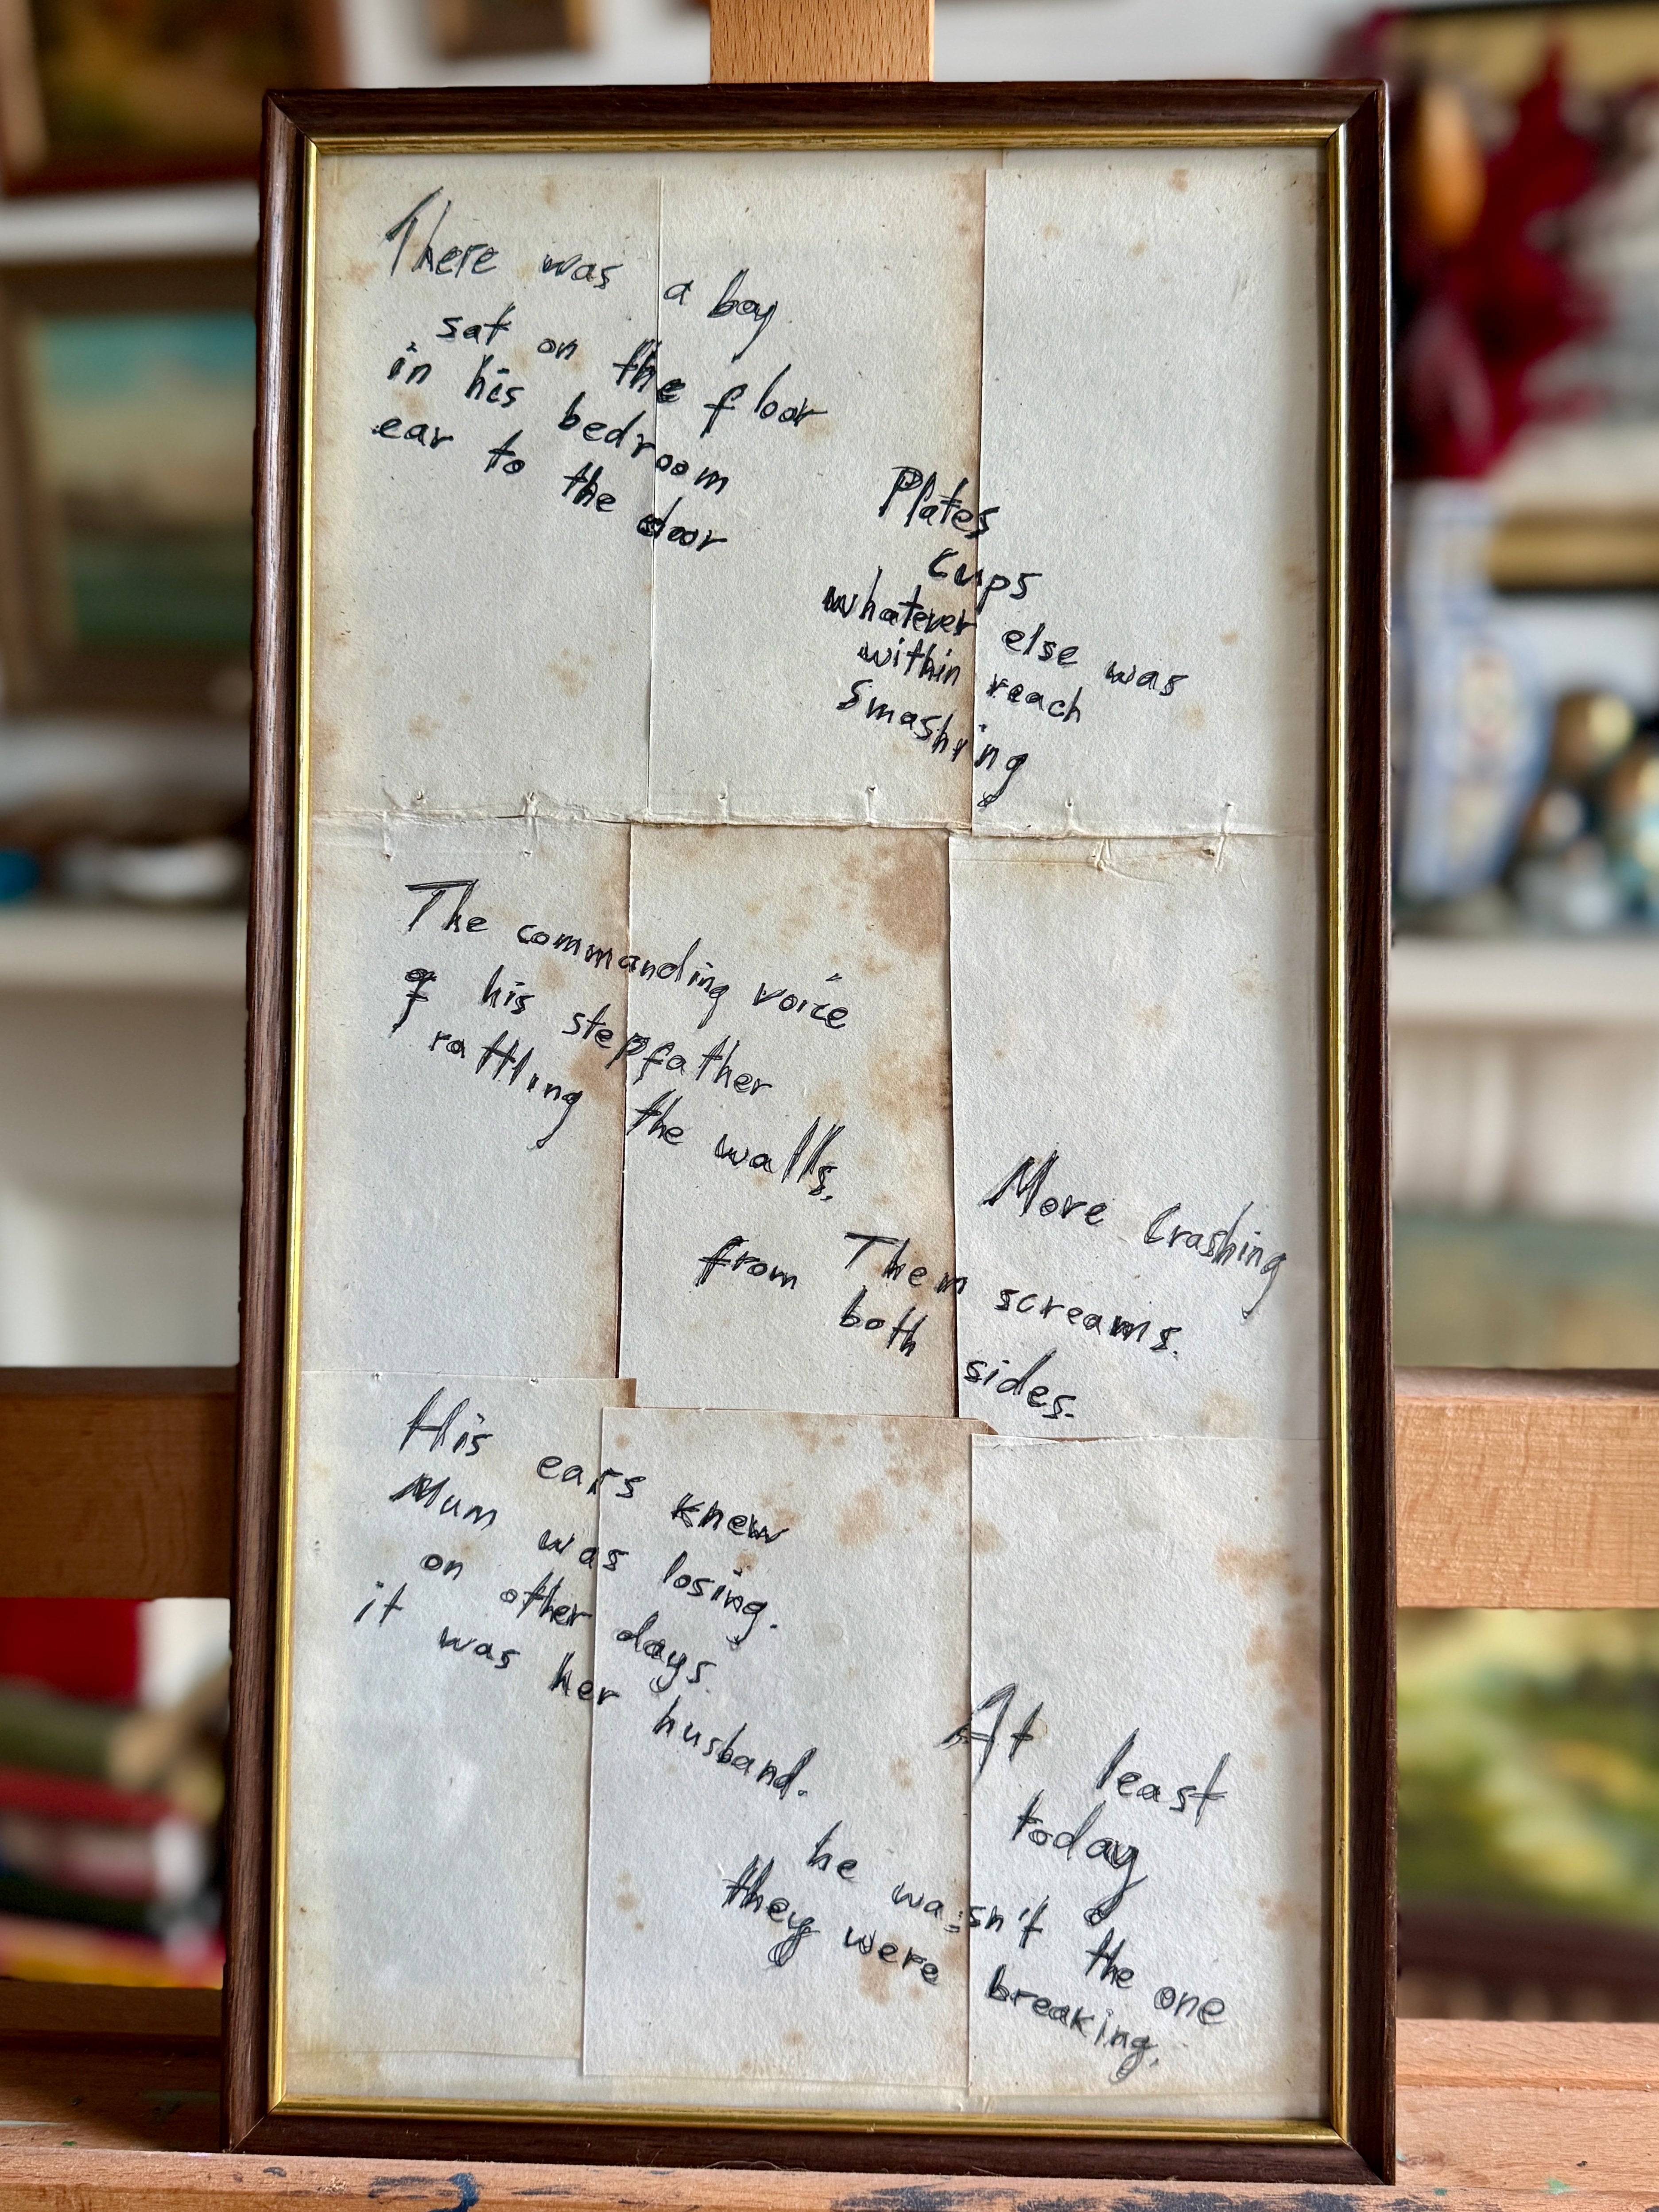 There was a boy
sat on the floor
in his bedroom
ear to the door
Plates
cups
whatever else was
within reach
smashing
The commanding voice
of his stepfather
rattling the walls.
More Crashing
Them screams.
from both sides.
His ears knew
Mum was losing.
on other days.
it was her husband.
At least
today
he wasn't the one
they were breaking.